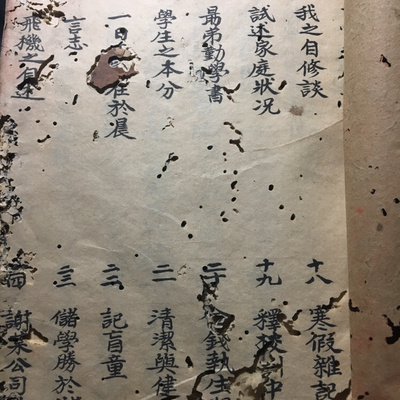 我之自修談
試述家庭狀况
勗弟勤學書
學生之本分
一日在於晨
言志
飛機之自述
十八 寒假雜記
十九 釋中
二十 錢
二一 清潔與健
二二 記盲童
二三 儲學勝於
謝某公司